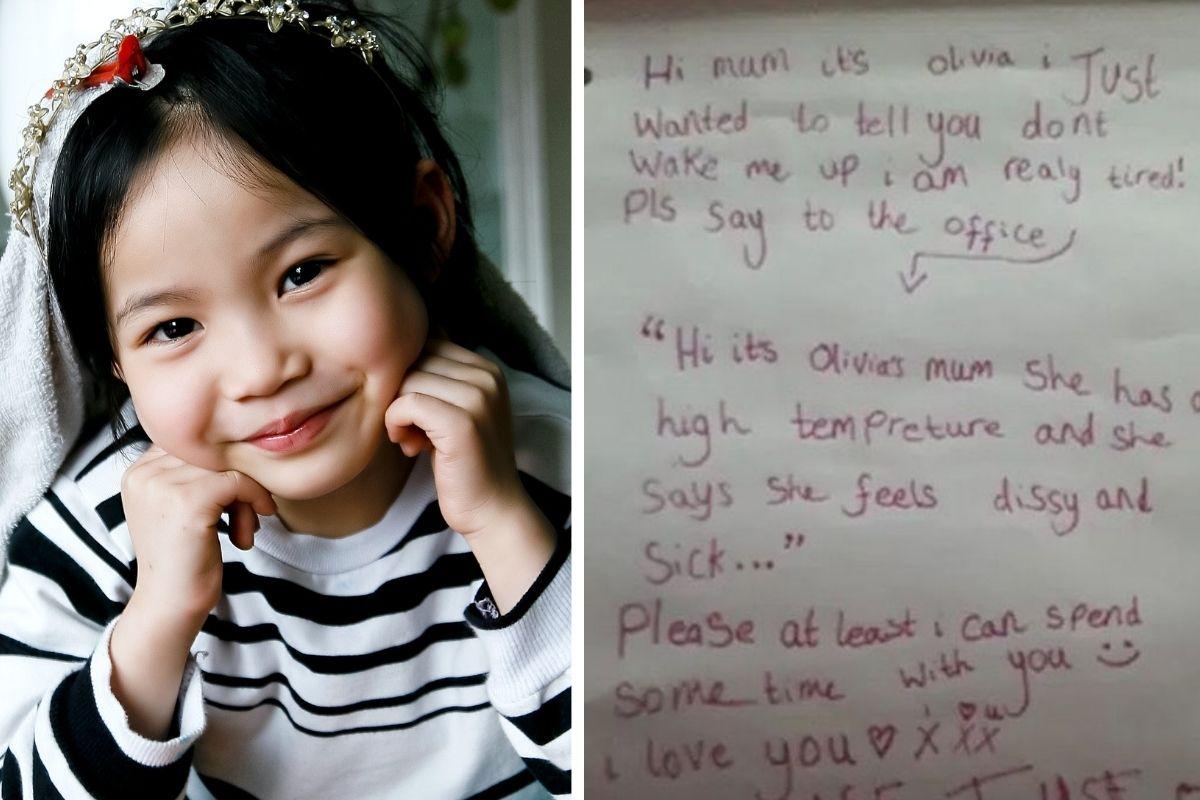 Hi mum it's olivia i Just
wanted to tell you dont
wake me up i am realy tired!
Pls say to the office
"Hi its Olivia's mum She has a
high tempreture and she
says She feels dissy and
Sick..."
Please at least i can spend
some time with you
i love you x xx
Just